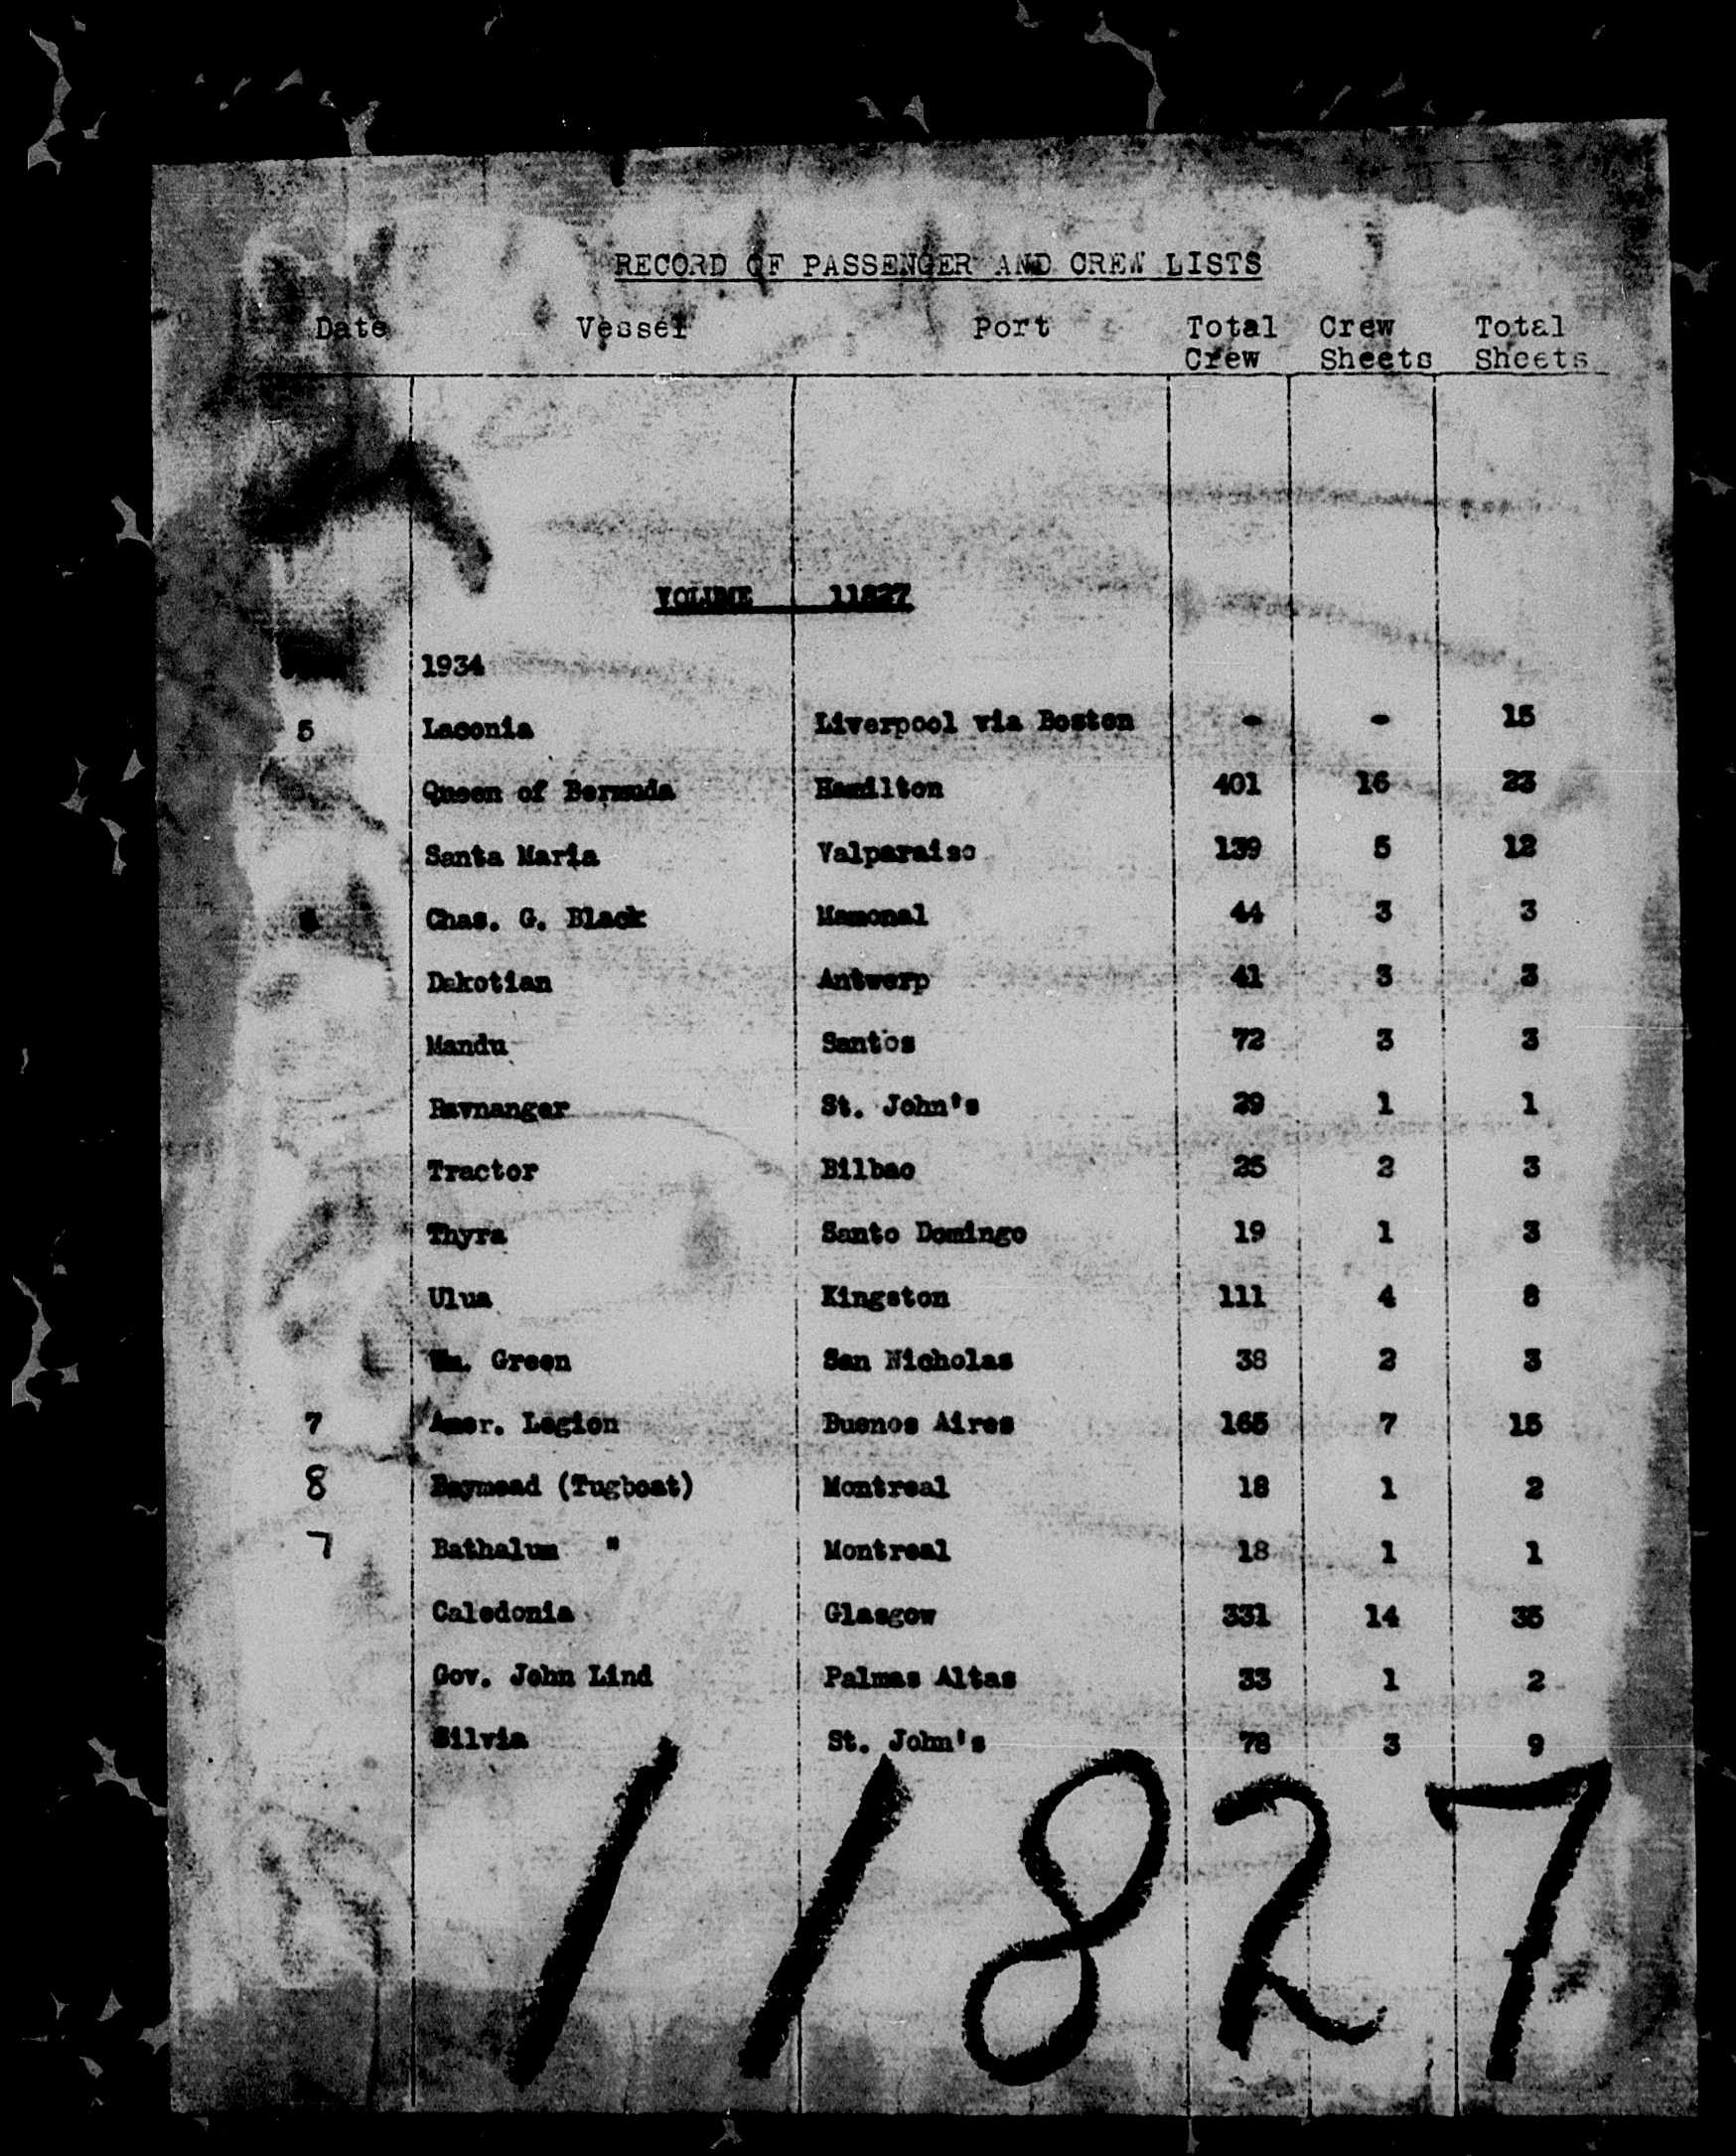 RECORD OF PASSENGER AND CREW LISTS
Date Vessel Port Total Crew Crew Sheets Total Sheets
VOLUME 11827
1934
5 Laconia Liverpool via Boston - - 15
Queen of Bermuda Hamilton 401 16 23
Santa Maria Valparaiso 139 5 12
Chas. G. Black Mamonal 44 3 3
Dakotian Antwerp 41 3 3
Mandu Santos 72 3 3
Ravnanger St. John's 29 1 1
Tractor Bilbao 25 2 3
Thyra Santo Domingo 19 1 3
Ulua Kingston 111 4 8
Wm. Green San Nicholas 38 2 3
7 Amer. Legion Buenos Aires 165 7 15
8 Baymead (Tugboat) Montreal 18 1 2
7 Bathalum " Montreal 18 1 1
Caledonia Glasgow 331 14 35
Gov. John Lind Palmas Altas 33 1 2
Silvia St. John's 78 3 9
11827